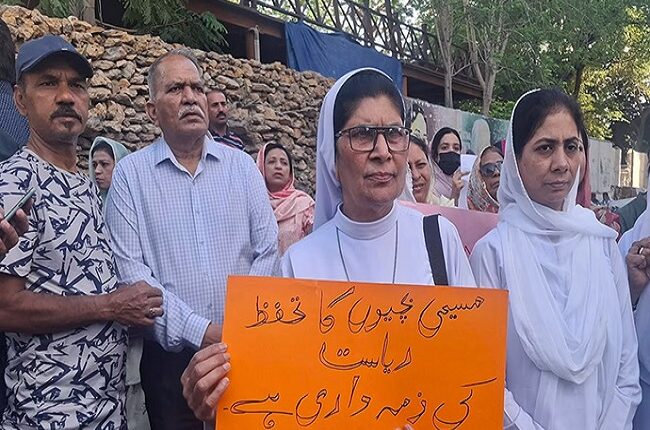 مسیحی بچیوں کا تحفظ
ریاست
کی زمہ داری ہے۔